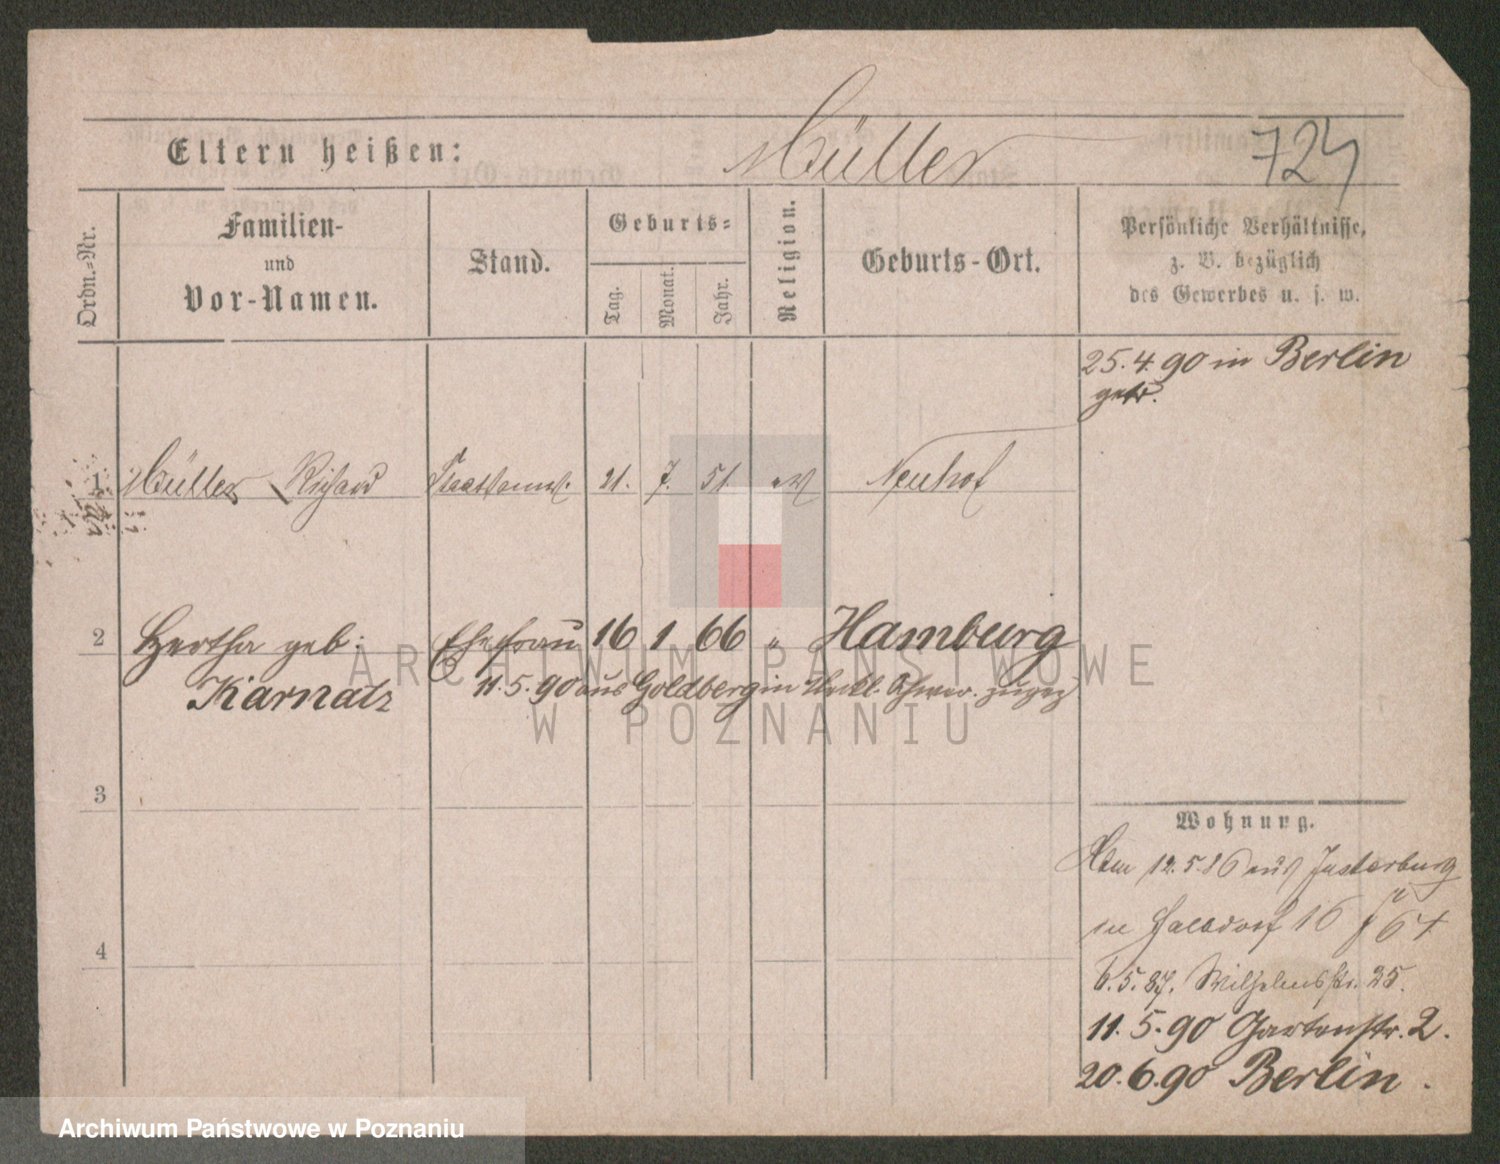 Eltern heißen: Müller 724
Ordn.-Nr.
Familien-
und
Vor-Namen.
Stand.
Geburts-
Tag.
Monat.
Jahr.
Religion.
Geburts-Ort.
Persönliche Verhältnisse,
z. B. bezüglich
des Gewerbes u. s. w.
25.4.90 in Berlin
getr.
1 Müller Richard Staatsanw. 21. 7. 51 ev Neuhof
2 Hertha geb: Ehefrau 16 1 66 " Hamburg
Karnatz 11.5.90 aus Goldberg in zugez
3
4
Wohnung.
12.5.86 aus Insterburg
in Halbdorf 16
6.5.87. Wilhelmsstr. 25.
11.5.90 Gartenstr. 2.
20.6.90 Berlin.
ARCHIWUM PAŃSTWOWE
W POZNANIU
Archiwum Państwowe w Poznaniu